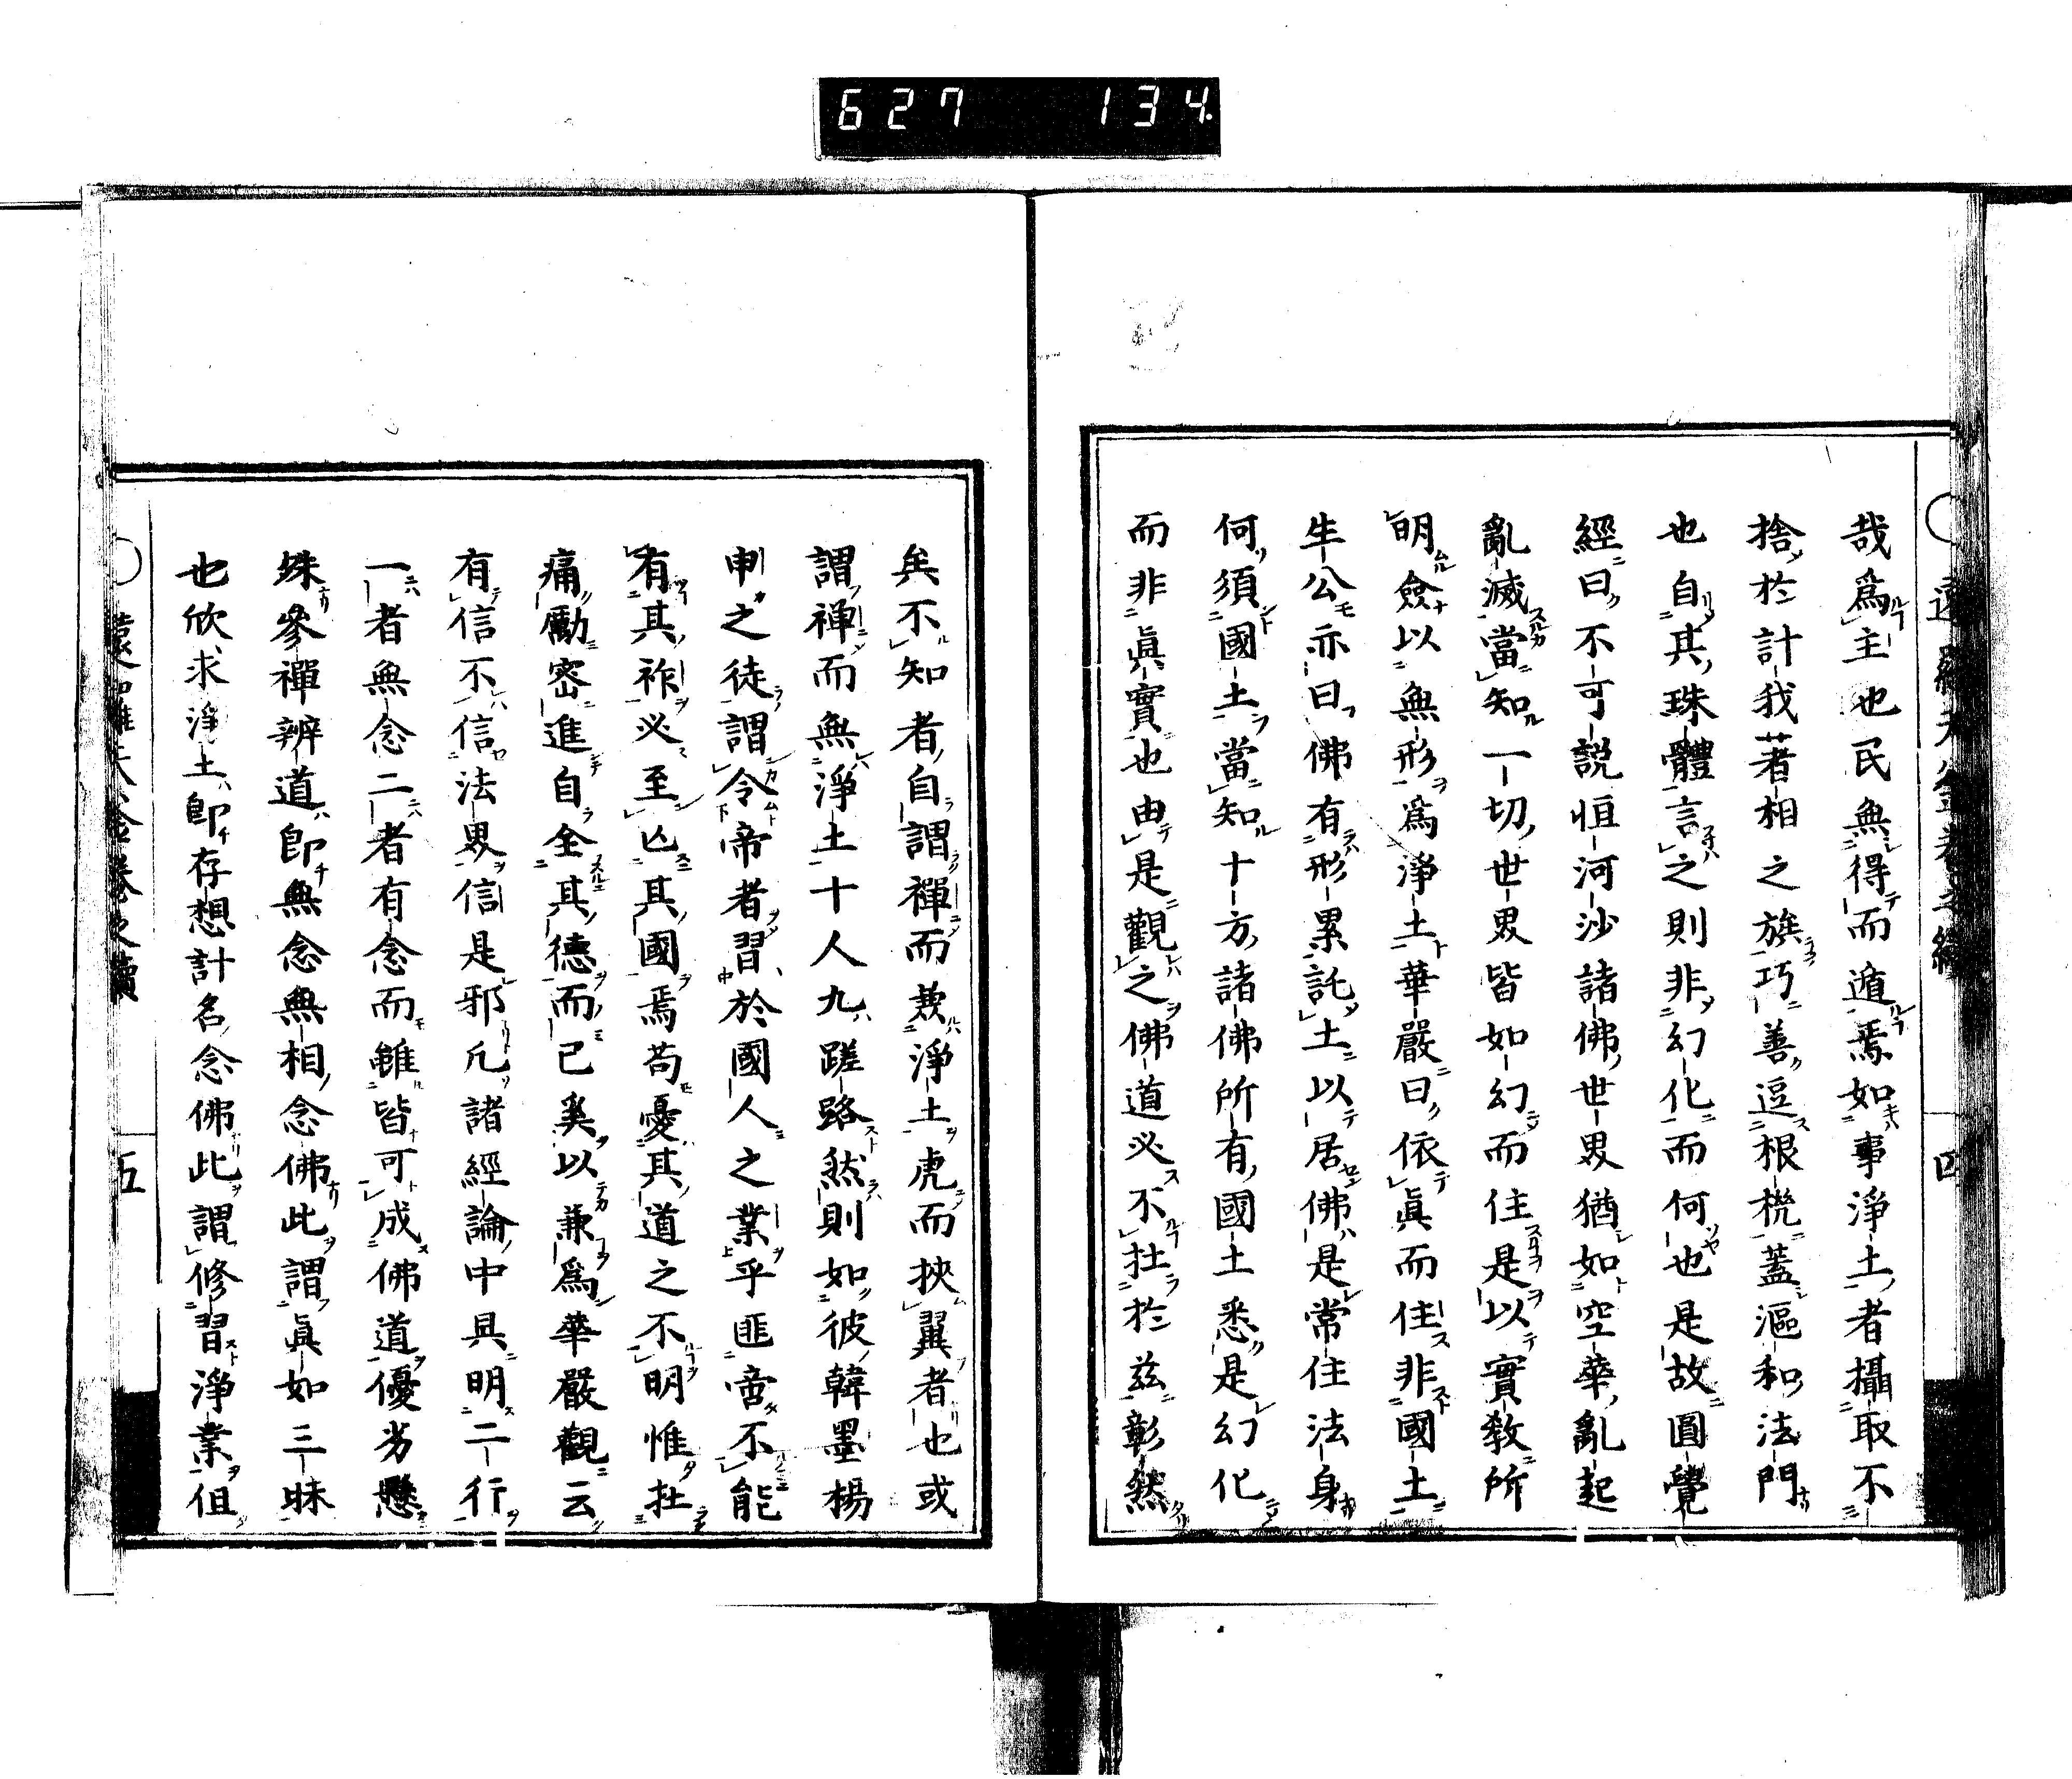 627 134
哉爲主也民無得而遁焉如事淨土者攝取不
捨於計我著相之族巧善逗根機蓋漚和法門
也自其珠體言之則非幻化而何也是故圓覺
經曰不可說恒河沙諸佛世界猶如空華亂起
亂滅當知一切世界皆如幻而住是以實教所
明僉以無形爲淨土華嚴曰依眞而住非國土
生公亦曰佛有形累託土以居佛是常住法身
何須國土當知十方諸佛所有國土悉是幻化
而非眞實也由是觀之佛道必不在於茲彰然
四
矣不知者自謂禪而兼淨土虎而挾翼者也或
謂禪而無淨土十人九蹉路然則如彼韓墨楊
申之徒謂令帝者習於國人之業乎匪啻不能
有其祚必至亡其國焉苟憂其道之不明惟在
痛勵密進自全其德而已奚以兼爲華嚴觀云
有信不信法界信是邪凡諸經論中具明二行
一者無念二者有念而雖皆可成佛道優劣懸
殊參禪辨道即無念無相念佛此謂眞如三昧
也欣求淨土即存想計名念佛此謂修習淨業但
五